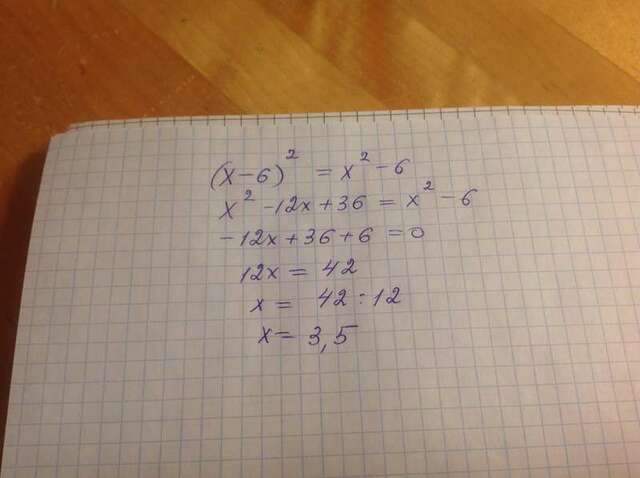 (x-6)² = x² - 6
x² - 12x + 36 = x² - 6
-12x + 36 + 6 = 0
12x = 42
x = 42 : 12
x = 3,5